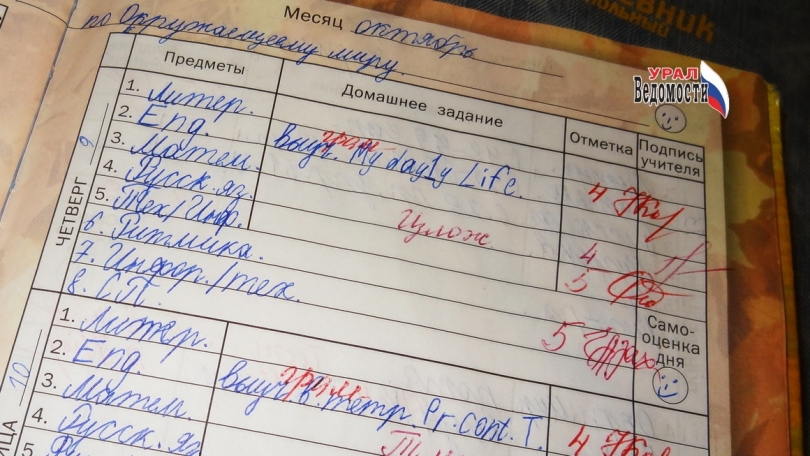 ВНИК
ШКОЛЬНЫЙ
УРАЛ
Ведомости
Месяц октябрь
по Окружающему миру.
Предметы Домашнее задание Отметка Подпись учителя
ЧЕТВЕРГ 9
1. Литер.
2. Eng. выуч. My dayly Life. 4
3. Матем.
4. Русск. яз. 4
5. Тех/Инф. 5
6. Ритмика.
7. Инфор./тех. 5
8. СП.
Само-
оценка
дня
ИЦА 10
1. Литер.
2. Eng. выуч. Pr. Cont. T. 4
3. Матем.
4. Русск. яз
5.